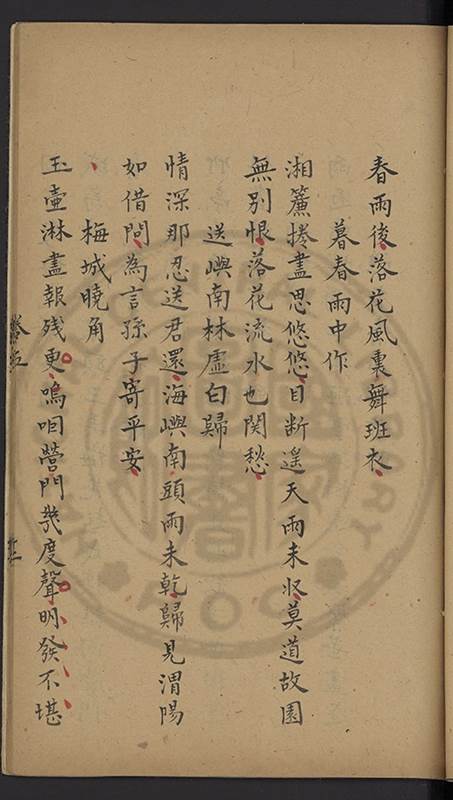 春雨後落花風裏舞班衣
暮春雨中作
湘簾捲盡思悠悠目断遥天雨未収莫道故園
無別恨落花流水也関愁
送嶼南林虛白歸
情深那忍送君還海嶼南頭雨未乾歸見渭陽
如借問為言孫子寄平安
梅城曉角
玉壷淋盡報残更嗚咽營門幾度聲明發不堪